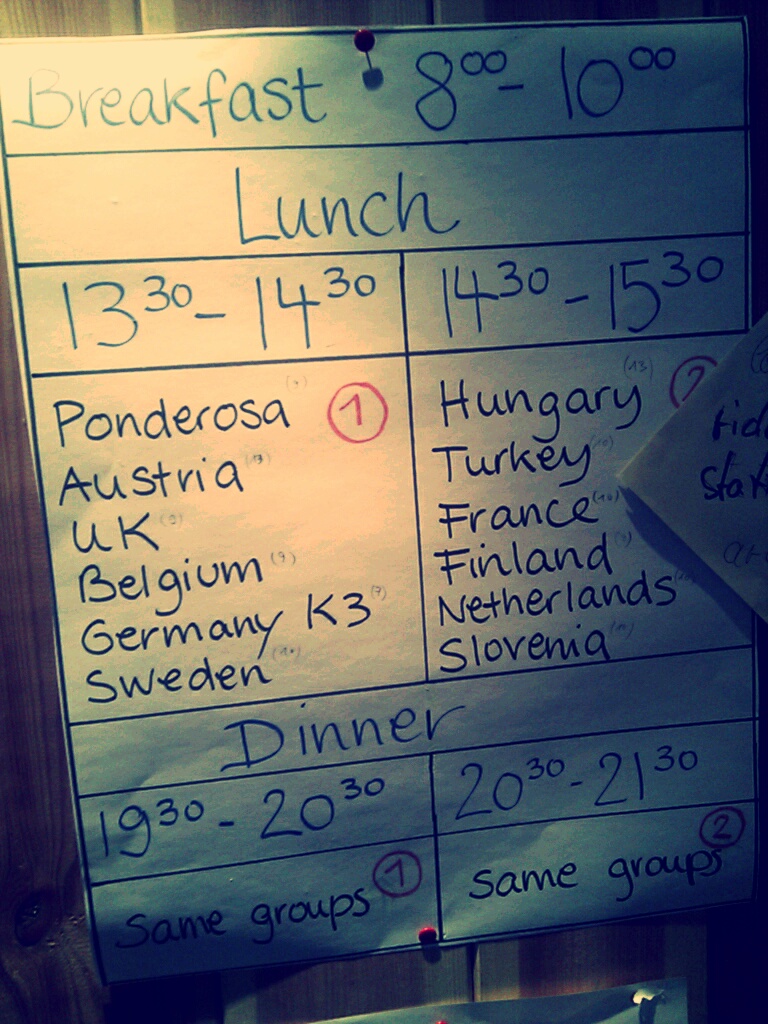 Breakfast 8⁰⁰ - 10⁰⁰
Lunch
13³⁰ - 14³⁰
14³⁰ - 15³⁰
Ponderosa 1
Austria
UK
Belgium (9)
Germany K3 (7)
Sweden
Hungary (13) 2
Turkey
France
Finland
Netherlands
Slovenia
Dinner
19³⁰ - 20³⁰
20³⁰ - 21³⁰
Same groups 1
Same groups 2